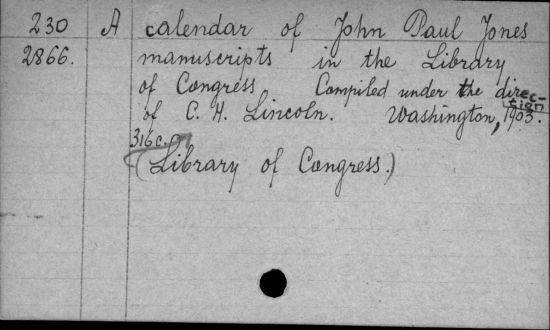 230 A calendar of John Paul Jones
2866. manuscripts in the Library
of Congress Compiled under the direc-
tion
of C. H. Lincoln. Washington, 1903.
316c.
(Library of Congress.)